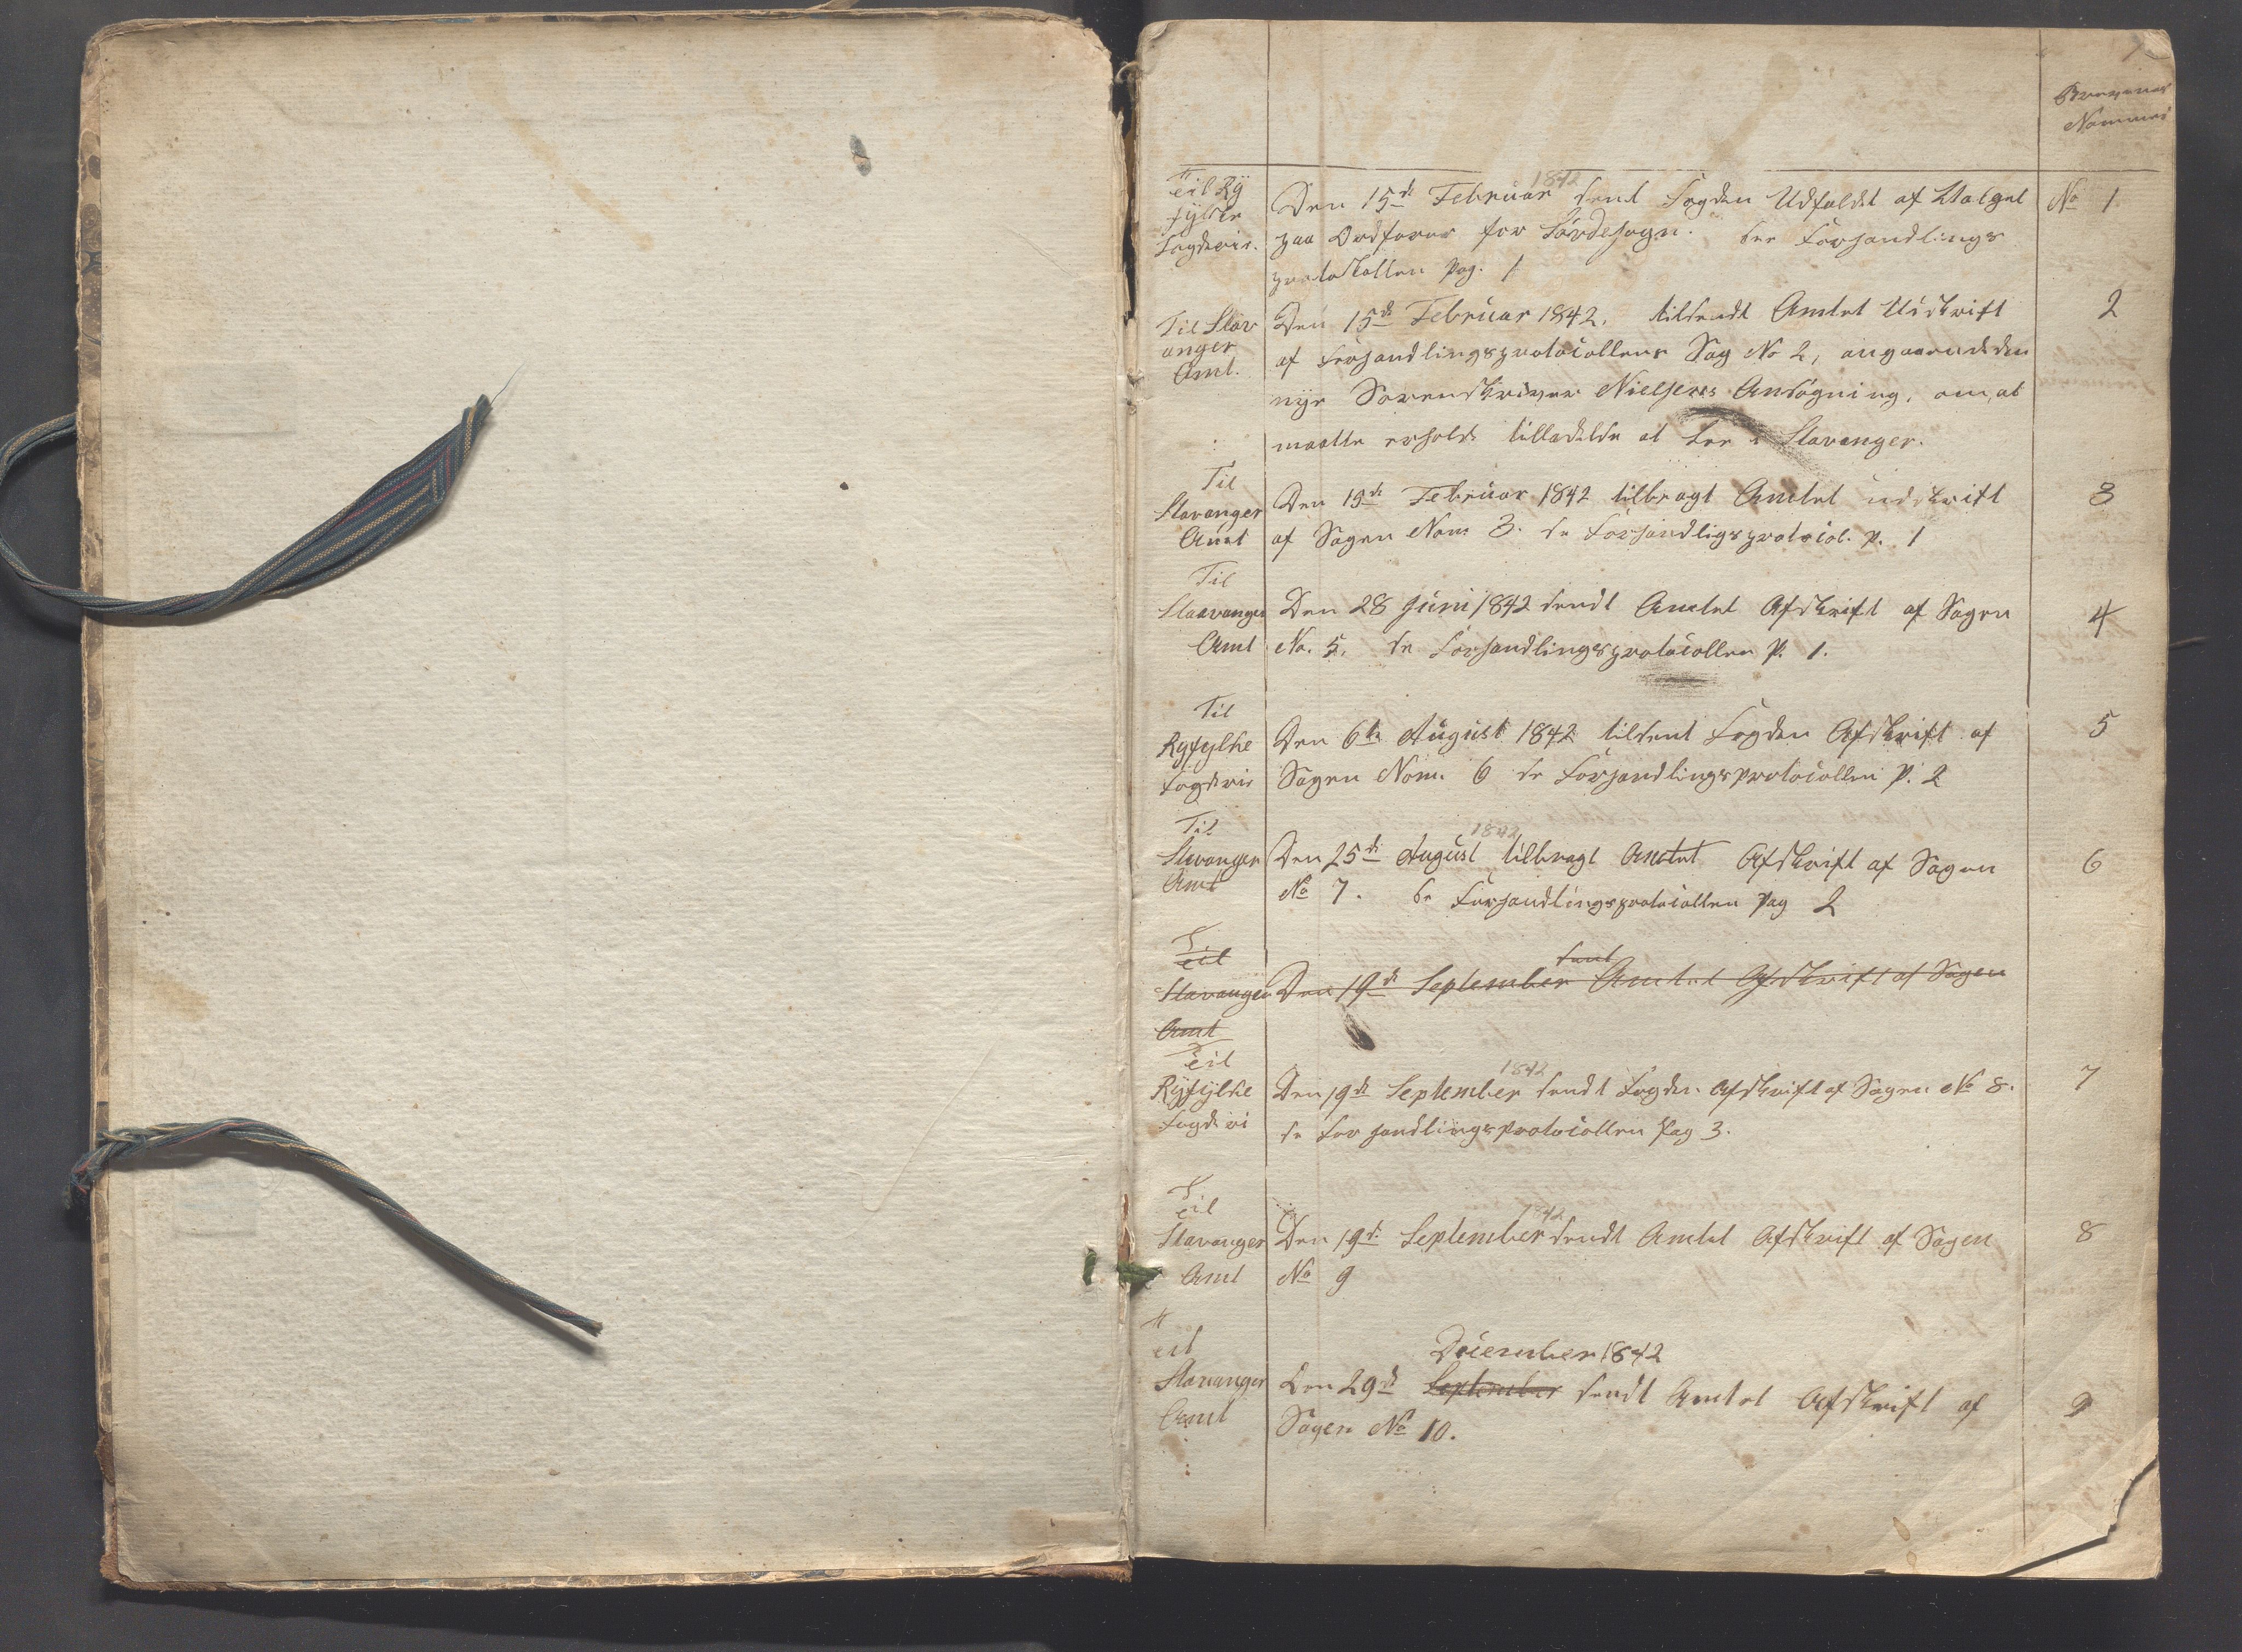 1
Brevenes
Nommer
Til Ry
fylke
Fogderie.
Den 15de Februar 1842 sent Fogden Udfaldet af Valget
paa Ordfører for Søvdesogn. See Forhandlings
protokollen Pag. 1
No 1
Til Stav
anger
Amt.
Den 15de Februar 1842. tilsendt Amtet Udskrift
af Forhandlingsprotocollens Sag No 2, angaaende den
nye Sorenskriver Nielsens Ansøgning, om at
maatte erholde tilladelse at boe i Stavanger.
2
Til
Stavanger
Amt
Den 19de Februar 1842 tilbragt Amtet udskrift
af Sagen Nom 3. se Forhandligsprotocol. P. 1
3
Til
Staavanger
Amt
Den 28 Juni 1842 sendt Amtet Afskrift af Sagen
No. 5. se Forhandlingsprotocollen P. 1.
4
Til
Ryfylke
Fogderie
Den 6te August 1842 tilsent Fogden Afskrift af
Sagen Nom. 6 se Forhandlingsprotocollen P. 2
5
Til
Stavanger
Amt
Den 25de August 1842 tilbragt Amtet Afskrift af Sagen
No 7. Se Forhandlingsprotocollen Pag 2
6
Til
Stavanger
Amt
Den 19de September sent Amtet Afskrift af Sagen
Til
Ryfylke
Fogderi
Den 19de September 1842 sendt Fogden Afskrift af Sagen No 8.
se Forhandlingsprotocollen Pag 3.
7
Til
Stavanger
Amt
Den 19de September 1842 sendt Amtet Afskrift af Sagen
No 9
8
Til
Stavanger
Amt
December 1842
Den 29de September sendt Amtet Afskrift af
Sagen No 10.
9